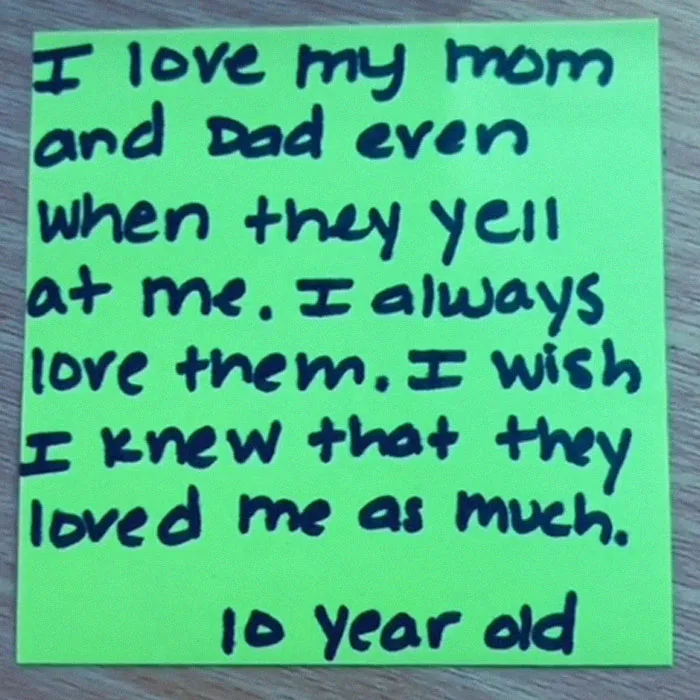 I love my mom
and Dad even
when they yell
at me. I always
love them. I wish
I knew that they
loved me as much.
10 year old